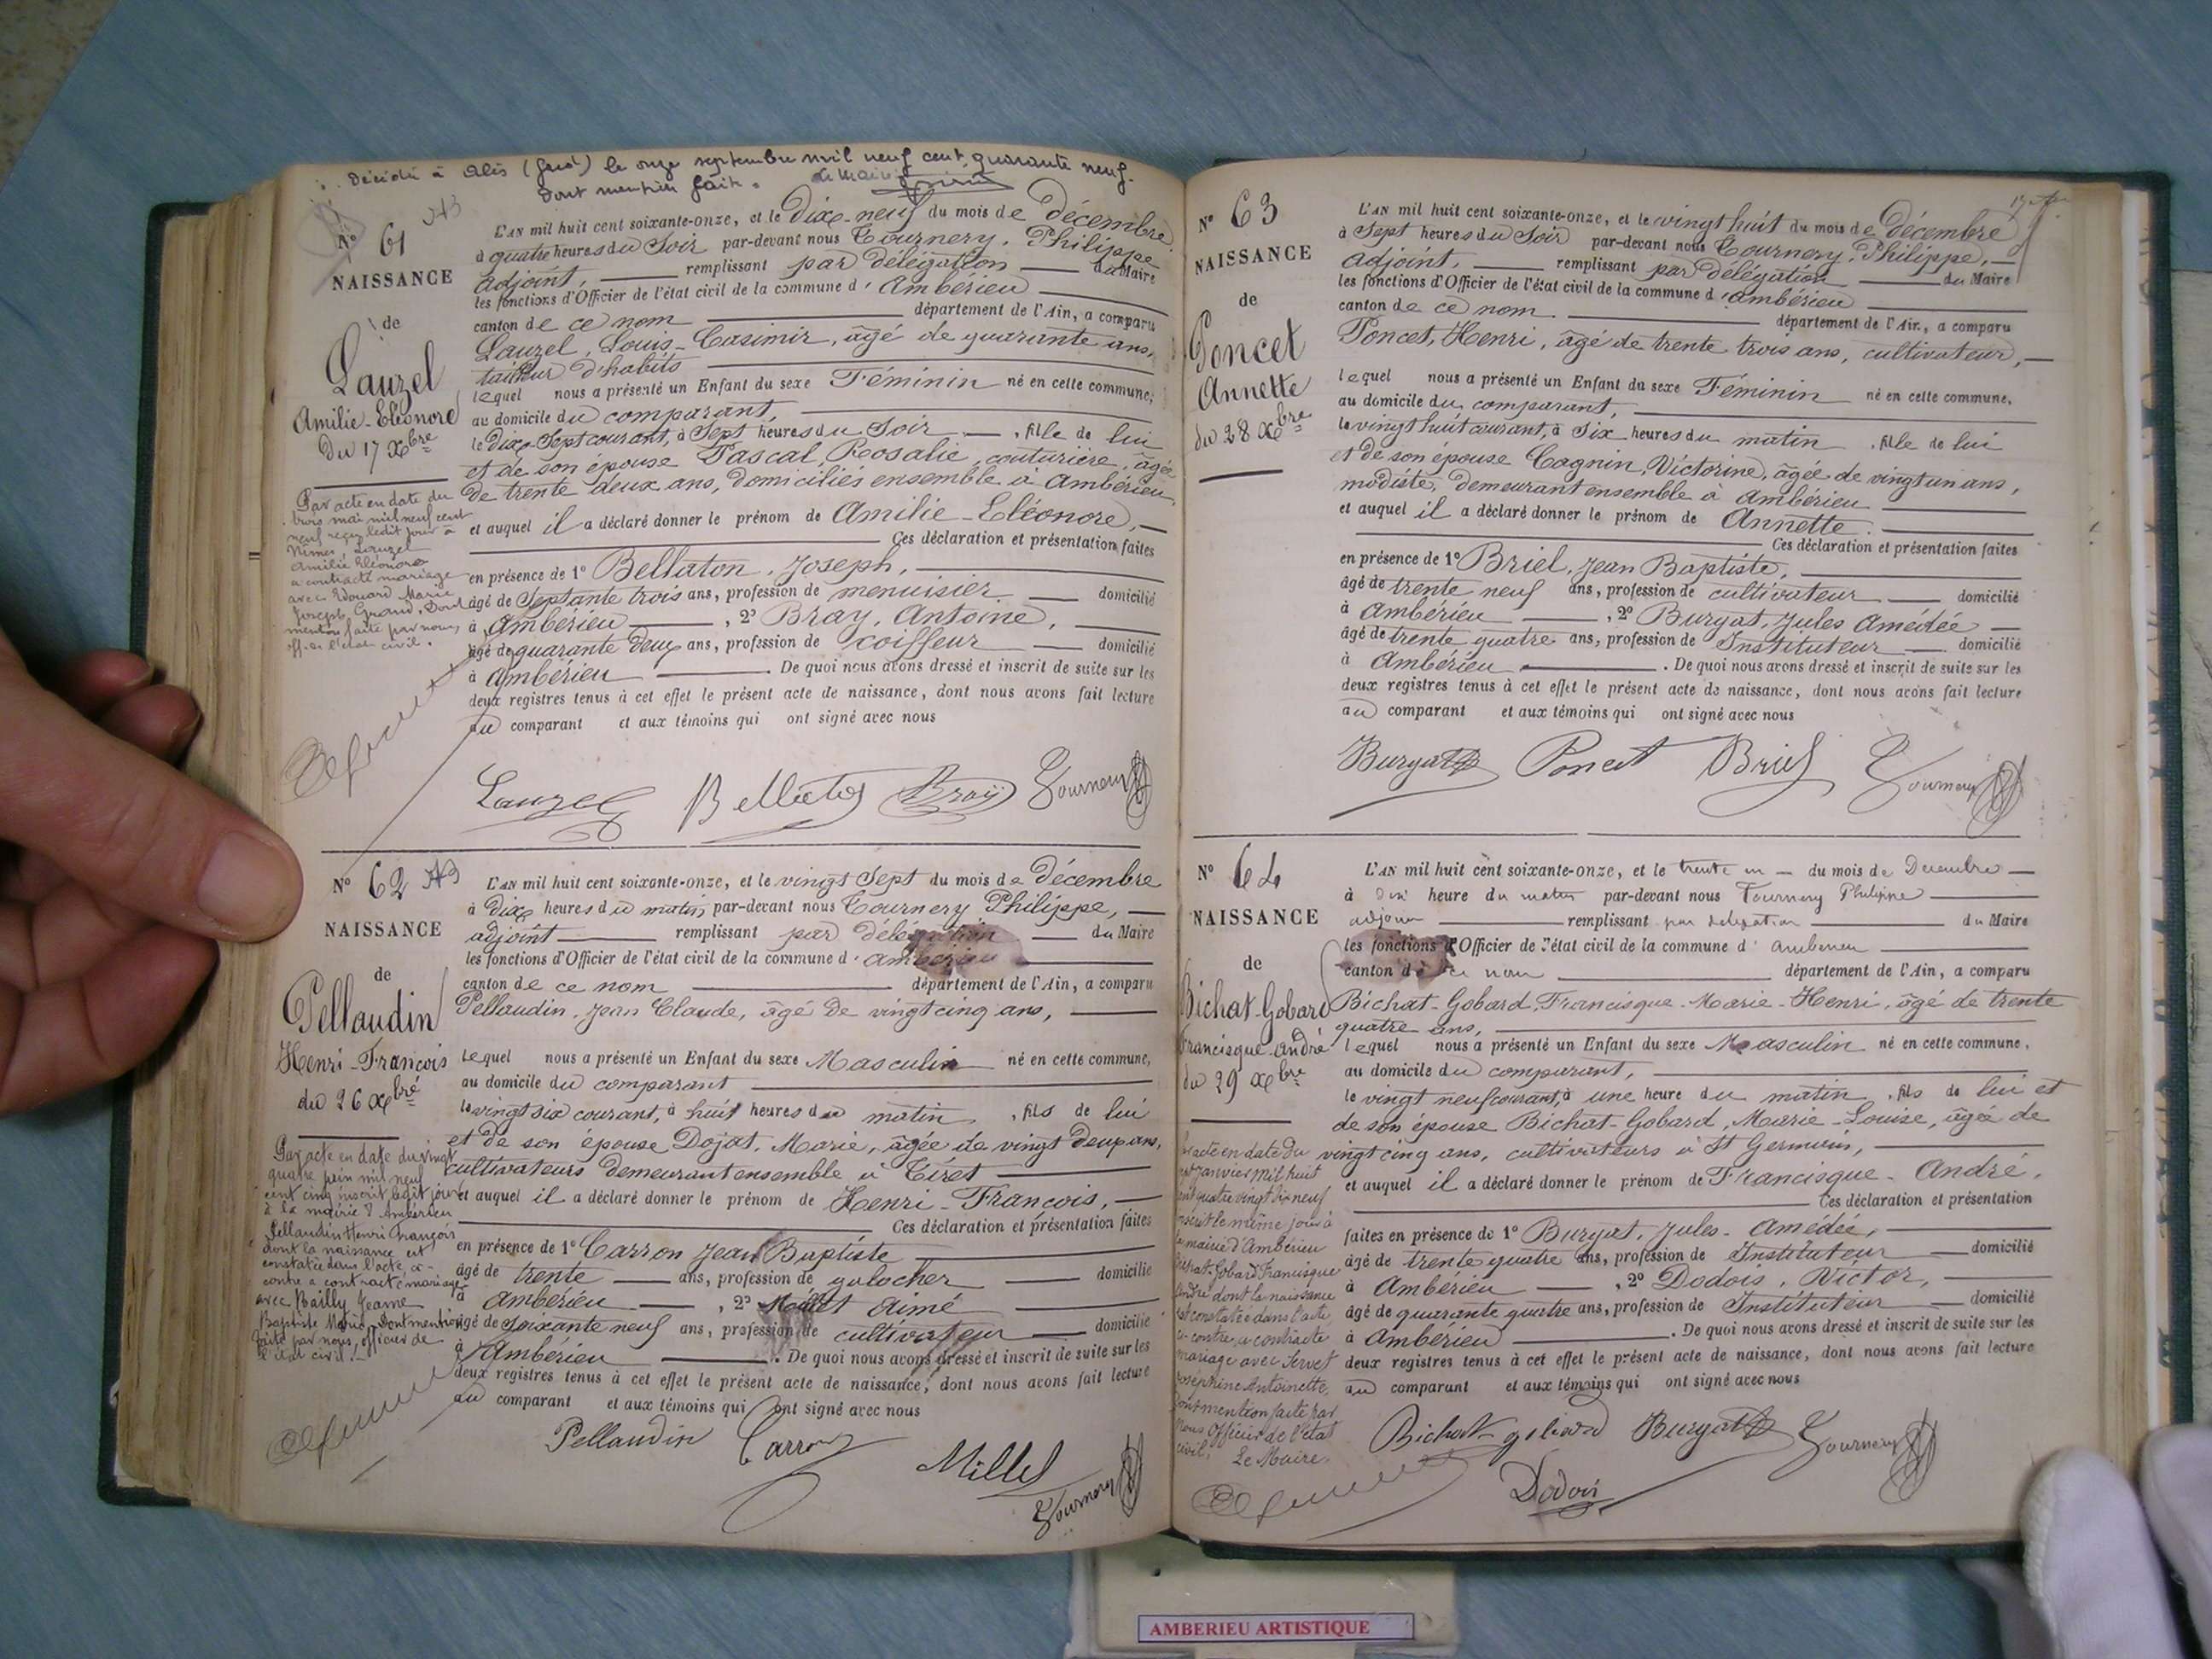 Décédée à Alès (Gard) le onze septembre mil neuf cent quarante neuf.
Dont mention faite. Le Maire
N° 61
NAISSANCE
de
Lauzel
Amilie-Eléonore
Du 17 Xbre
Par acte en date du
trois mai mil neuf cent
neuf reçu ledit jour à
Nîmes, Lauzel
Amilie Eléonore
a contracté mariage
avec Edouard Marie
Joseph Grand, Dont
mention faite par nous,
off. de l'état civil.
L'AN mil huit cent soixante-onze, et le Dix-neuf du mois de décembre
à quatre heures du Soir par-devant nous Tournery, Philippe
adjoint, remplissant par délégation du Maire
les fonctions d'Officier de l'état civil de la commune d'Ambérieu
canton de ce nom département de l'Ain, a comparu
Lauzel, Louis-Casimir, âgé de quarante ans,
tailleur d'habits
lequel nous a présenté un Enfant du sexe Féminin né en cette commune,
au domicile du comparant,
le Dix-Sept courant, à Sept heures du Soir, fille de lui
et de son épouse Pascal, Rosalie, couturière, âgée
de trente deux ans, domiciliés ensemble à Ambérieu
et auquel il a déclaré donner le prénom de Amilie-Eléonore,
Ces déclaration et présentation faites
en présence de 1° Bellaton, Joseph,
âgé de Septante trois ans, profession de menuisier domicilié
à Ambérieu, 2° Bray, Antoine,
âgé de quarante deux ans, profession de coiffeur domicilié
à Ambérieu. De quoi nous avons dressé et inscrit de suite sur les
deux registres tenus à cet effet le présent acte de naissance, dont nous avons fait lecture
au comparant et aux témoins qui ont signé avec nous
Lauzel Bellaton Bray Tournery
N° 62
NAISSANCE
de
Pellaudin
Henri-François
du 26 Xbre
Par acte en date du vingt
quatre juin mil neuf
cent cinq inscrit ledit jour
à la mairie d'Ambérieu
Pellaudin Henri François
dont la naissance est
constatée dans l'acte ci-
contre a contracté mariage
avec Bailly Jeanne
Baptiste Maria. Dont mention
faite par nous, officier de
l'état civil.
L'AN mil huit cent soixante-onze, et le vingt Sept du mois de décembre
à Dix heures du matin par-devant nous Tournery Philippe,
adjoint remplissant par délégation du Maire
les fonctions d'Officier de l'état civil de la commune d'Ambérieu
canton de ce nom département de l'Ain, a comparu
Pellaudin, Jean Claude, âgé de vingt cinq ans,
lequel nous a présenté un Enfant du sexe Masculin né en cette commune,
au domicile du comparant
le vingt six courant, à huit heures du matin, fils de lui
et de son épouse Dojat, Marie, âgée de vingt deux ans,
cultivateurs demeurant ensemble à Tiret
et auquel il a déclaré donner le prénom de Henri-François,
Ces déclaration et présentation faites
en présence de 1° Carron Jean Baptiste
âgé de trente ans, profession de galocher domicilié
à Ambérieu, 2° Millet Aimé
âgé de soixante neuf ans, profession de cultivateur domicilié
à Ambérieu. De quoi nous avons dressé et inscrit de suite sur les
deux registres tenus à cet effet le présent acte de naissance, dont nous avons fait lecture
au comparant et aux témoins qui ont signé avec nous
Pellaudin Carron Millet Tournery
N° 63
NAISSANCE
de
Poncet
Annette
du 28 Xbre
L'AN mil huit cent soixante-onze, et le vingt huit du mois de décembre
à Sept heures du Soir par-devant nous Tournery, Philippe,
adjoint, remplissant par délégation du Maire
les fonctions d'Officier de l'état civil de la commune d'Ambérieu
canton de ce nom département de l'Ain, a comparu
Poncet, Henri, âgé de trente trois ans, cultivateur,
lequel nous a présenté un Enfant du sexe Féminin né en cette commune,
au domicile du comparant,
le vingt huit courant, à Six heures du matin, fille de lui
et de son épouse Cagnin, Victorine, âgée de vingt un ans,
modiste, demeurant ensemble à Ambérieu
et auquel il a déclaré donner le prénom de Annette
Ces déclaration et présentation faites
en présence de 1° Briel, Jean Baptiste,
âgé de trente neuf ans, profession de cultivateur domicilié
à Ambérieu, 2° Burgat, Jules Amédée
âgé de trente quatre ans, profession de Instituteur domicilié
à Ambérieu. De quoi nous avons dressé et inscrit de suite sur les
deux registres tenus à cet effet le présent acte de naissance, dont nous avons fait lecture
au comparant et aux témoins qui ont signé avec nous
Burgat Poncet Briel Tournery
N° 64
NAISSANCE
de
Bichat-Gobard
Francisque-André
du 29 Xbre
acte en date du
janvier mil huit
cent quatre vingt dix neuf
inscrit le même jour à
la mairie d'Ambérieu
Bichat-Gobard Francisque
André dont la naissance
est constatée dans l'acte
ci-contre, a contracté
mariage avec Servet
Joséphine Antoinette,
Dont mention faite par
Nous Officier de l'état
civil, Le Maire.
L'AN mil huit cent soixante-onze, et le trente un du mois de Decembre
à dix heure du matin par-devant nous Tournery Philippe
adjoint remplissant par delegation du Maire
les fonctions d'Officier de l'état civil de la commune d'Amberieu
canton de ce nom département de l'Ain, a comparu
Bichat-Gobard, Francisque-Marie-Henri, âgé de trente
quatre ans,
lequel nous a présenté un Enfant du sexe Masculin né en cette commune,
au domicile du comparant,
le vingt neuf courant, à une heure du matin, fils de lui et
de son épouse Bichat-Gobard, Marie-Louise, âgée de
vingt cinq ans, cultivateurs à St Germain,
et auquel il a déclaré donner le prénom de Francisque-André.
Ces déclaration et présentation
faites en présence de 1° Burgat, Jules-Amédée,
âgé de trente quatre ans, profession de Instituteur domicilié
à Ambérieu, 2° Dodois, Victor,
âgé de quarante quatre ans, profession de Instituteur domicilié
à Ambérieu. De quoi nous avons dressé et inscrit de suite sur les
deux registres tenus à cet effet le présent acte de naissance, dont nous avons fait lecture
au comparant et aux témoins qui ont signé avec nous
Bichat gobard Burgat Tournery
Dodois
AMBERIEU ARTISTIQUE